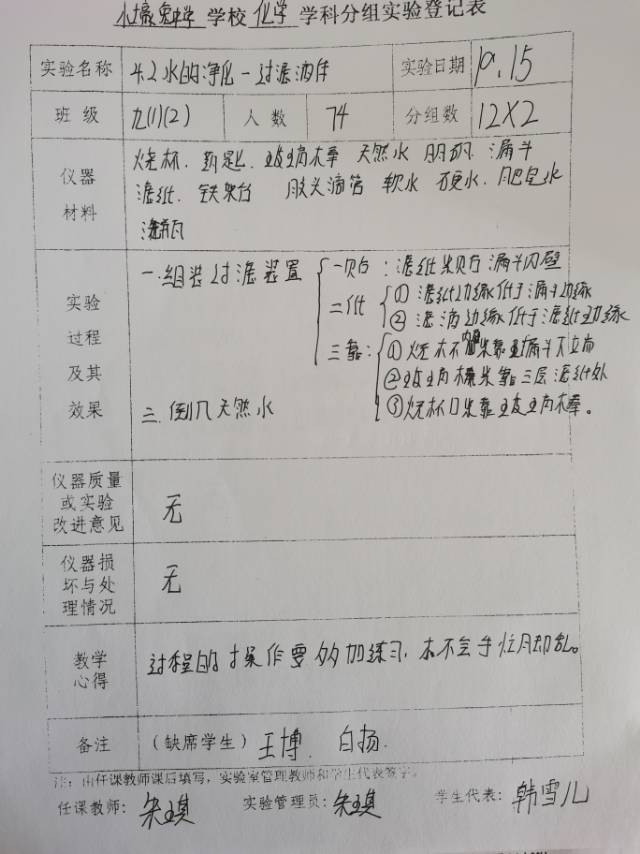 小壕兔中学 学校 化学 学科分组实验登记表
实验名称 4.2水的净化-过滤操作 实验日期 10.15
班级 九(1)(2) 人数 74 分组数 12X2
仪器材料
烧杯. 药匙. 玻璃棒 天然水 明矾. 漏斗
滤纸. 铁架台 胶头滴管 软水 硬水. 肥皂水
实验过程及其效果
一.组装过滤装置
一贴：滤纸紧贴漏斗内壁
二低
①滤纸边缘低于漏斗边缘
②滤液边缘低于滤纸边缘
三靠：
①烧杯内壁紧靠漏斗下方
②玻璃棒紧靠三层滤纸处
③烧杯口紧靠玻璃棒。
二.倒入天然水
仪器质量或实验改进意见 无
仪器损坏与处理情况 无
教学心得 过程的操作要多加练习.才不会手忙脚乱。
备注 （缺席学生）王博. 白扬.
注：由任课教师课后填写，实验室管理教师和学生代表签字。
任课教师：朱琪 实验管理员：朱琪 学生代表：韩雪儿